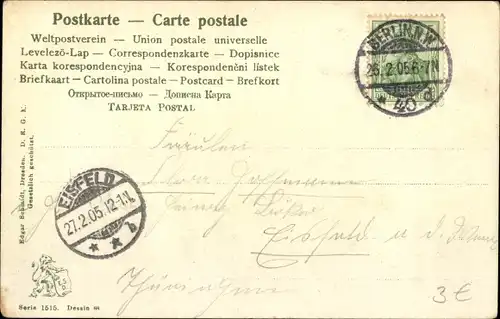 Postkarte — Carte postale
Weltpostverein — Union postale universelle
Levelező-Lap — Correspondenzkarte — Dopisnice
Karta korespondencyjna — Korespondenční lístek
Briefkaart — Cartolina postale — Postcard — Brefkort
Открытое-письмо — Дописна Карта
Tarjeta Postal
BERLIN N.W.
26.2.05.6-7N
40
Edgar Schmidt, Dresden. D. R. G. M.
Gesetzlich geschützt.
Fräulein
Hoffmann
EISFELD
27.2.05.12-1.N.
b
Eisfeld
Thüringen
Serie 1515. Dessin
3€